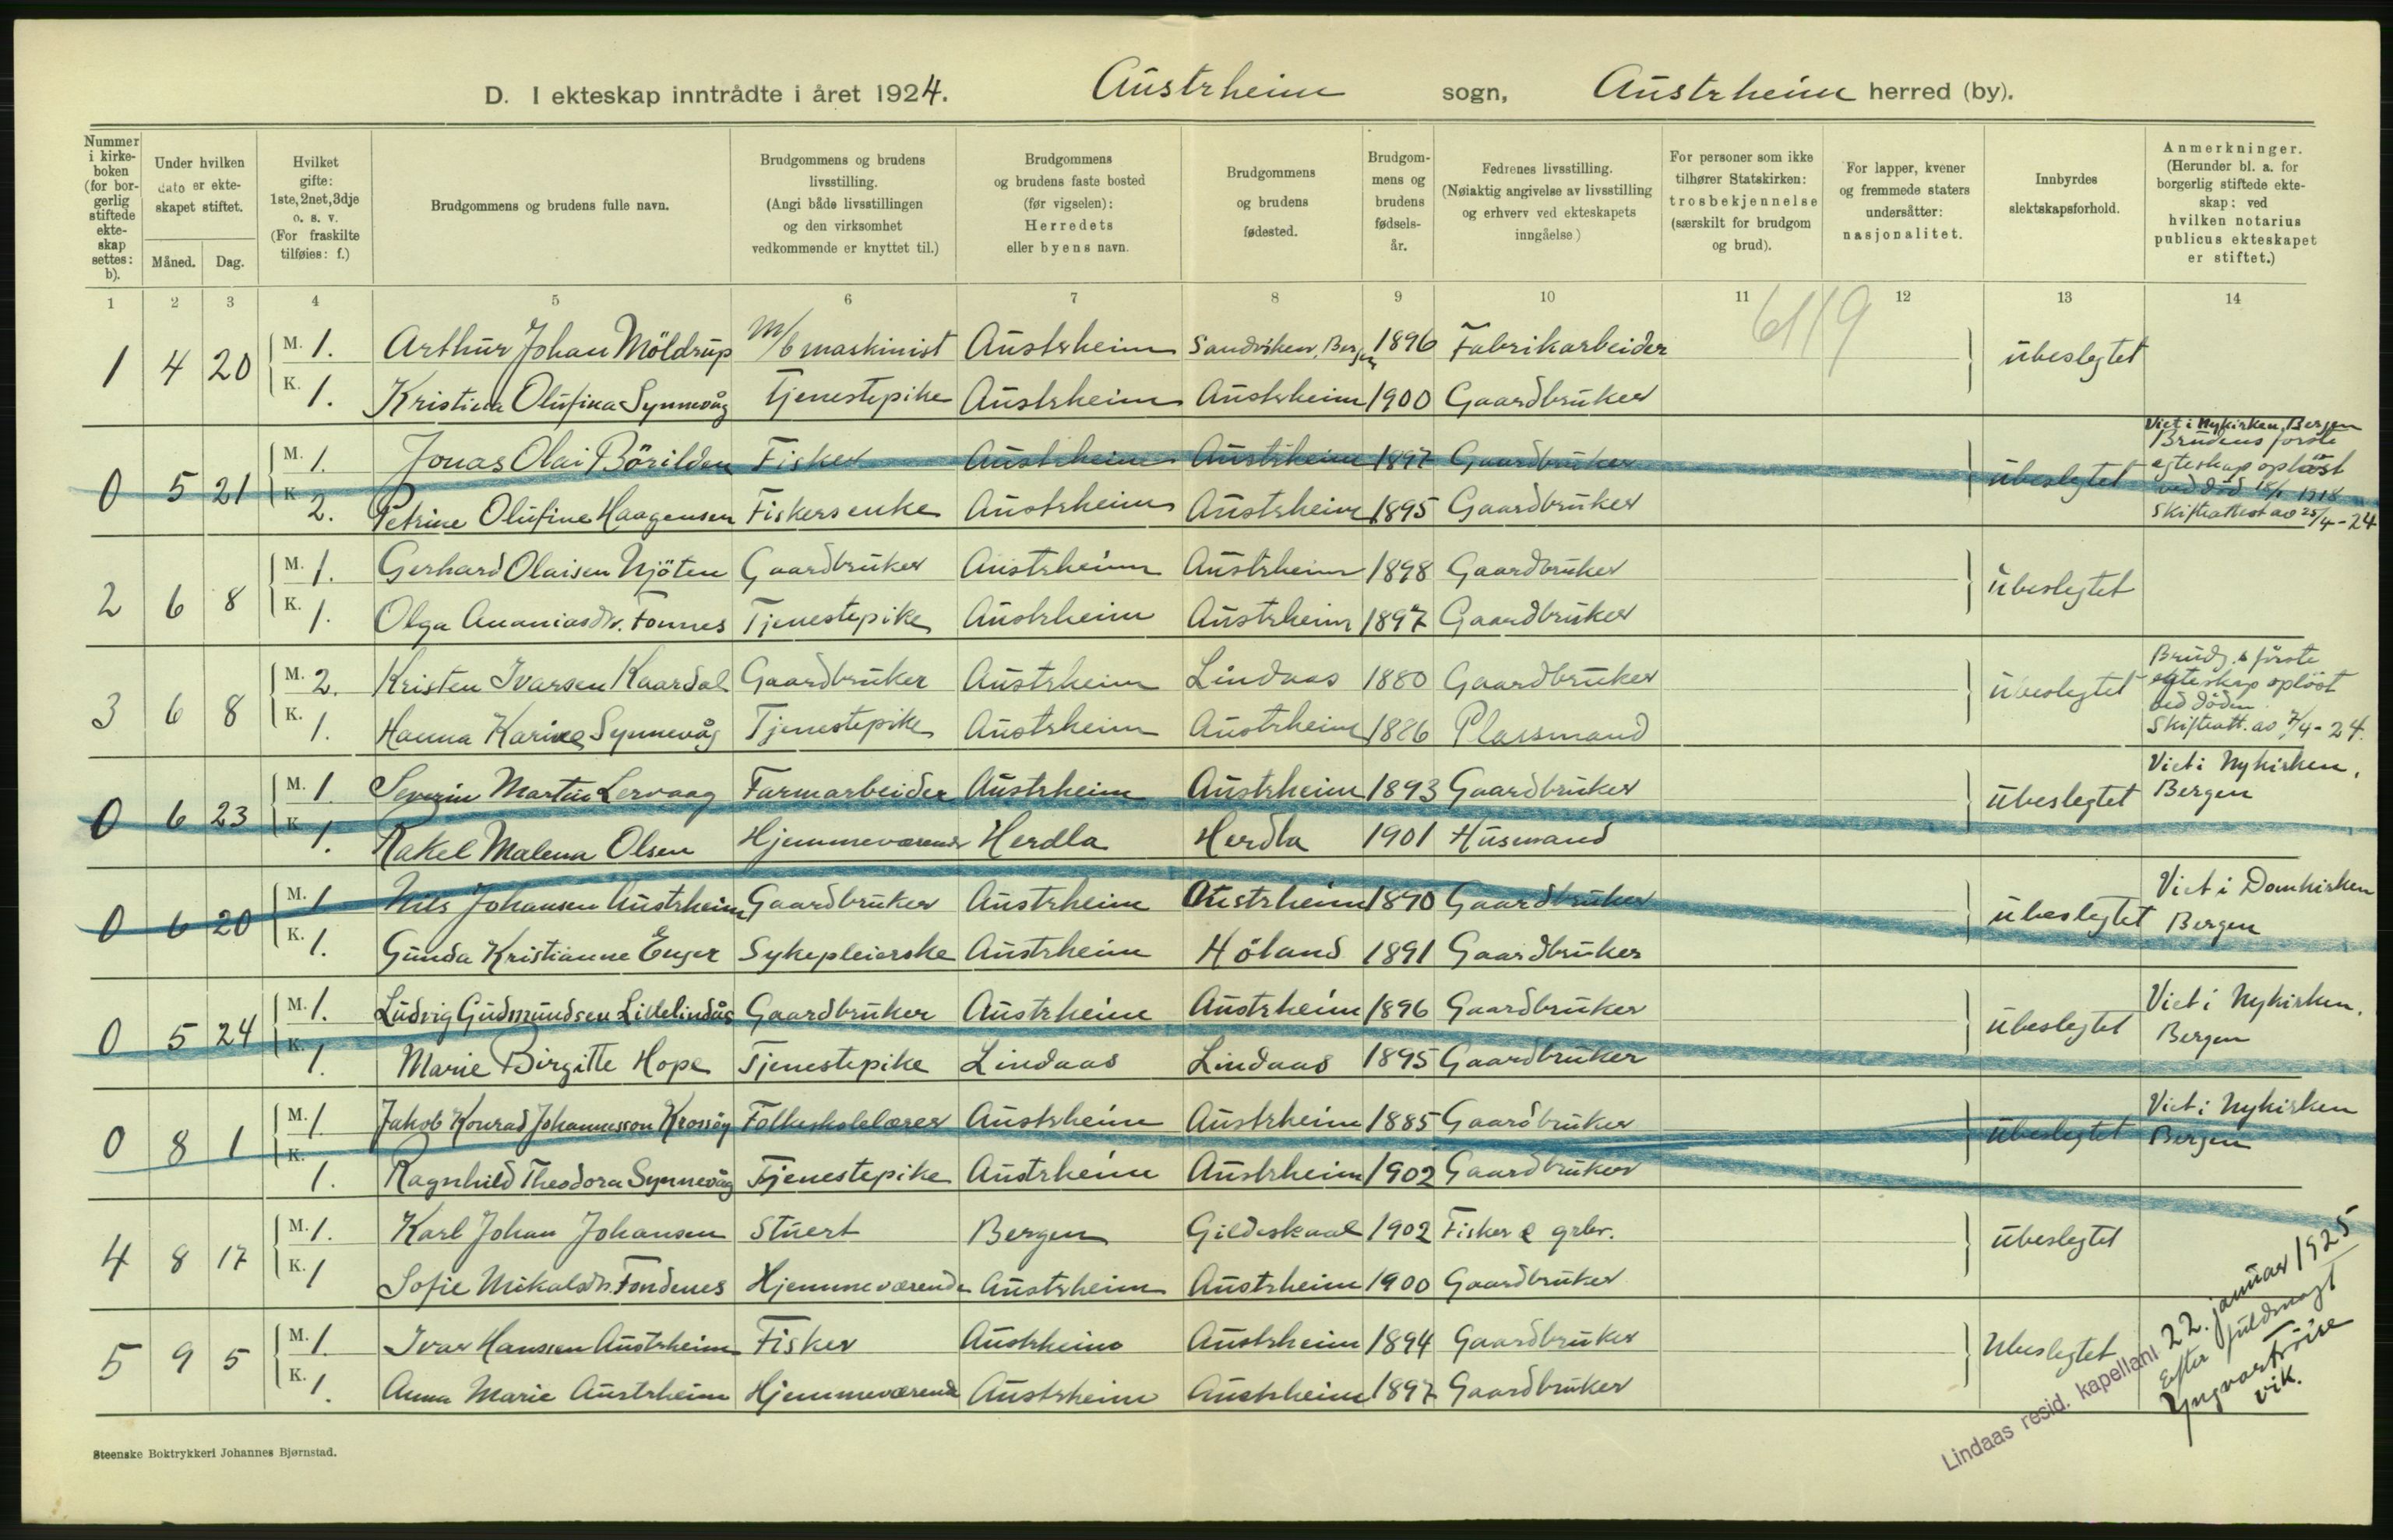 D. I ekteskap inntrådte i året 1924. Austrheim sogn, Austrheim herred (by).
Nummer i kirke-boken (for bor-gerlig stiftede ekte-skap settes: b).
Under hvilken dato er ekte-skapet stiftet.
Måned. Dag.
Hvilket gifte: 1ste, 2net, 3dje o. s. v. (For fraskilte tilføies: f.)
Brudgommens og brudens fulle navn.
Brudgommens og brudens livsstilling. (Angi både livsstillingen og den virksomhet vedkommende er knyttet til.)
Brudgommens og brudens faste bosted (før vigselen): Herredets eller byens navn.
Brudgommens og brudens fødested.
Brudgom-mens og brudens fødsels-år.
Fedrenes livsstilling. (Nøiaktig angivelse av livsstilling og erhverv ved ekteskapets inngåelse)
For personer som ikke tilhører Statskirken: trosbekjennelse (særskilt for brudgom og brud).
For lapper, kvener og fremmede staters undersåtter: nasjonalitet.
Innbyrdes slektskapsforhold.
Anmerkninger. (Herunder bl. a. for borgerlig stiftede ekte-skap: ved hvilken notarius publicus ekteskapet er stiftet.)
1 2 3 4 5 6 7 8 9 10 11 12 13 14
6119
1 4 20 M. 1. Arthur Johan Möldrup M/b maskinist Austrheim Sandviken, Bergen 1896 Fabrikarbeider ubeslegtet
K. 1. Kristina Olufina Synnevåg Tjenestepike Austrheim Austrheim 1900 Gaardbruker
0 5 21 M. 1. Jonas Olai Börilden Fisker Austrheim Austrheim 1897 Gaardbruker ubeslegtet
K. 2. Petrine Olufine Haagensen Fiskersenke Austrheim Austrheim 1895 Gaardbruker
Viet i Nykirken, Bergen
Brudens forste
egteskap oplöst
ved död 18/1 1918
Skifteattest av 25/4-24
2 6 8 M. 1. Gerhard Olaisen Njöten Gaardbruker Austrheim Austrheim 1898 Gaardbruker ubeslegtet
K. 1. Olga Ananiasdtr. Fonnes Tjenestepike Austrheim Austrheim 1897 Gaardbruker
3 6 8 M. 2. Kristen Ivarsen Kaardal Gaardbruker Austrheim Lindaas 1880 Gaardbruker ubeslegtet
K. 1. Hanna Karine Synnevåg Tjenestepike Austrheim Austrheim 1886 Plassmand
Brudg.s förste
egteskap oplöst
ved döden
Skifteatt. av 7/4-24.
0 6 23 M. 1. Severin Martin Lervaag Farmarbeider Austrheim Austrheim 1893 Gaardbruker ubeslegtet Viet i Nykirken, Bergen
K. 1. Rakel Malena Olsen Hjemmeværende Herdla Herdla 1901 Husmand
0 6 20 M. 1 Nils Johansen Austrheim Gaardbruker Austrheim Austrheim 1890 Gaardbruker ubeslegtet Viet i Domkirken Bergen
K. 1. Gunda Kristianne Enger Sykepleierske Austrheim Höland 1891 Gaardbruker
0 5 24 M. 1. Ludvig Gudmundsen Lillelindås Gaardbruker Austrheim Austrheim 1896 Gaardbruker ubeslegtet Viet i Nykirken, Bergen
K. 1. Marie Birgitte Hope Tjenestepike Lindaas Lindaas 1895 Gaardbruker
0 8 1 M. 1 Jakob Konrad Johannesson Krossöy Folkeskolelærer Austrheim Austrheim 1885 Gaardbruker ubeslegtet Viet i Nykirken Bergen
K. 1. Ragnhild Theodora Synnevåg Tjenestepike Austrheim Austrheim 1902 Gaardbruker
4 8 17 M. 1. Karl Johan Johansen Stuert Bergen Gildeskaal 1902 Fisker & grbr. ubeslegtet
K. 1 Sofie Mikalsdtr. Fondenes Hjemmeværende Austrheim Austrheim 1900 Gaardbruker
5 9 5 M. 1. Ivar Hanssen Austrheim Fisker Austrheim Austrheim 1894 Gaardbruker Ubeslegtet
K. 1. Anna Marie Austrheim Hjemmeværende Austrheim Austrheim 1897 Gaardbruker
Lindaas resid. kapellani 22. januar 1925
Efter fuldmagt
Yngvar Tröise
vik.
Steenske Boktrykkeri Johannes Bjørnstad.